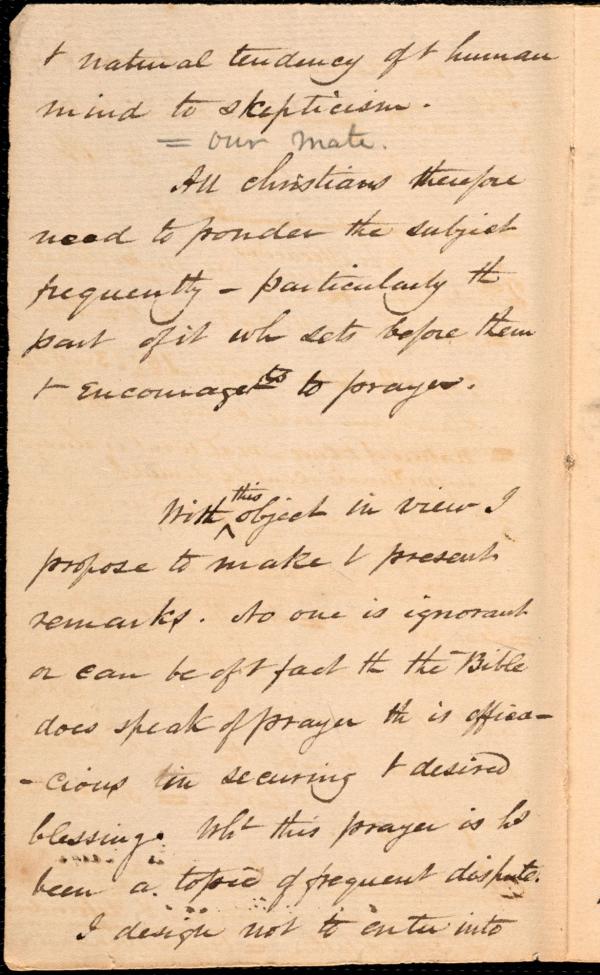 t natural tendency of t human
mind to skepticism.
= our mate.
All christians therefore
need to ponder the subject
frequently - particularly th
part of it wh sets before them
t Encouragets to prayer.
With this object in view I
propose to make t present
remarks. No one is ignorant
or can be of t fact th the Bible
does speak of prayer th is effica-
-cious in securing t desired
blessing. Wht this prayer is hs
been a topic of frequent dispute.
I design not to enter into